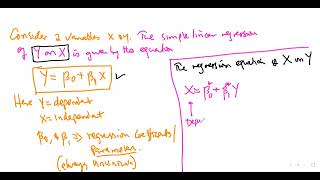 Consider 2 variables X & Y. The simple linear regression
of Y on X is given by the equation
Y = β₀ + β₁ X
Here Y = dependent
X = independent
β₀, & β₁ ⇒ regression Coefficients/
Parameters
(always unknown)
The regression equation of X on Y
X = β₀* + β₁* Y